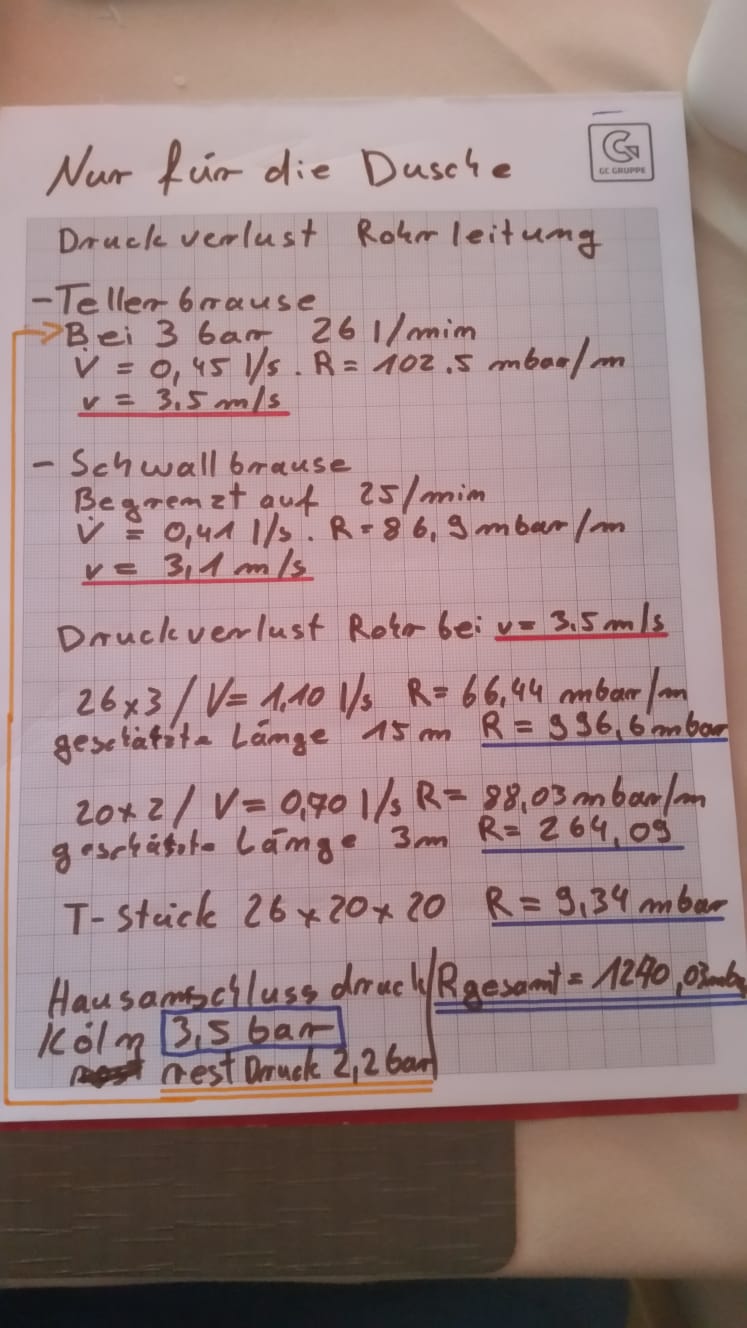 GC GRUPPE
Nur für die Dusche
Druckverlust Rohrleitung
- Tellerbrause
Bei 3 bar 26 l/min
V̇ = 0,45 l/s. R = 102.5 mbar/m
v = 3.5 m/s
- Schwallbrause
Begrenzt auf 25/min
V̇ = 0,41 l/s. R = 86,9 mbar/m
v = 3,1 m/s
Druckverlust Rohr bei v = 3.5 m/s
26x3 / V = 1,10 l/s R = 66,44 mbar/m
geschätzte Länge 15 m R = 996,6 mbar
20x2 / V = 0,70 l/s R = 88,03 mbar/m
geschätzte Länge 3m R = 264,09
T-Stück 26x20x20 R = 9,34 mbar
Hausanschlussdruck Rgesamt = 1240,03 mbar
Köln 3,5 bar
rest Druck 2,2 bar